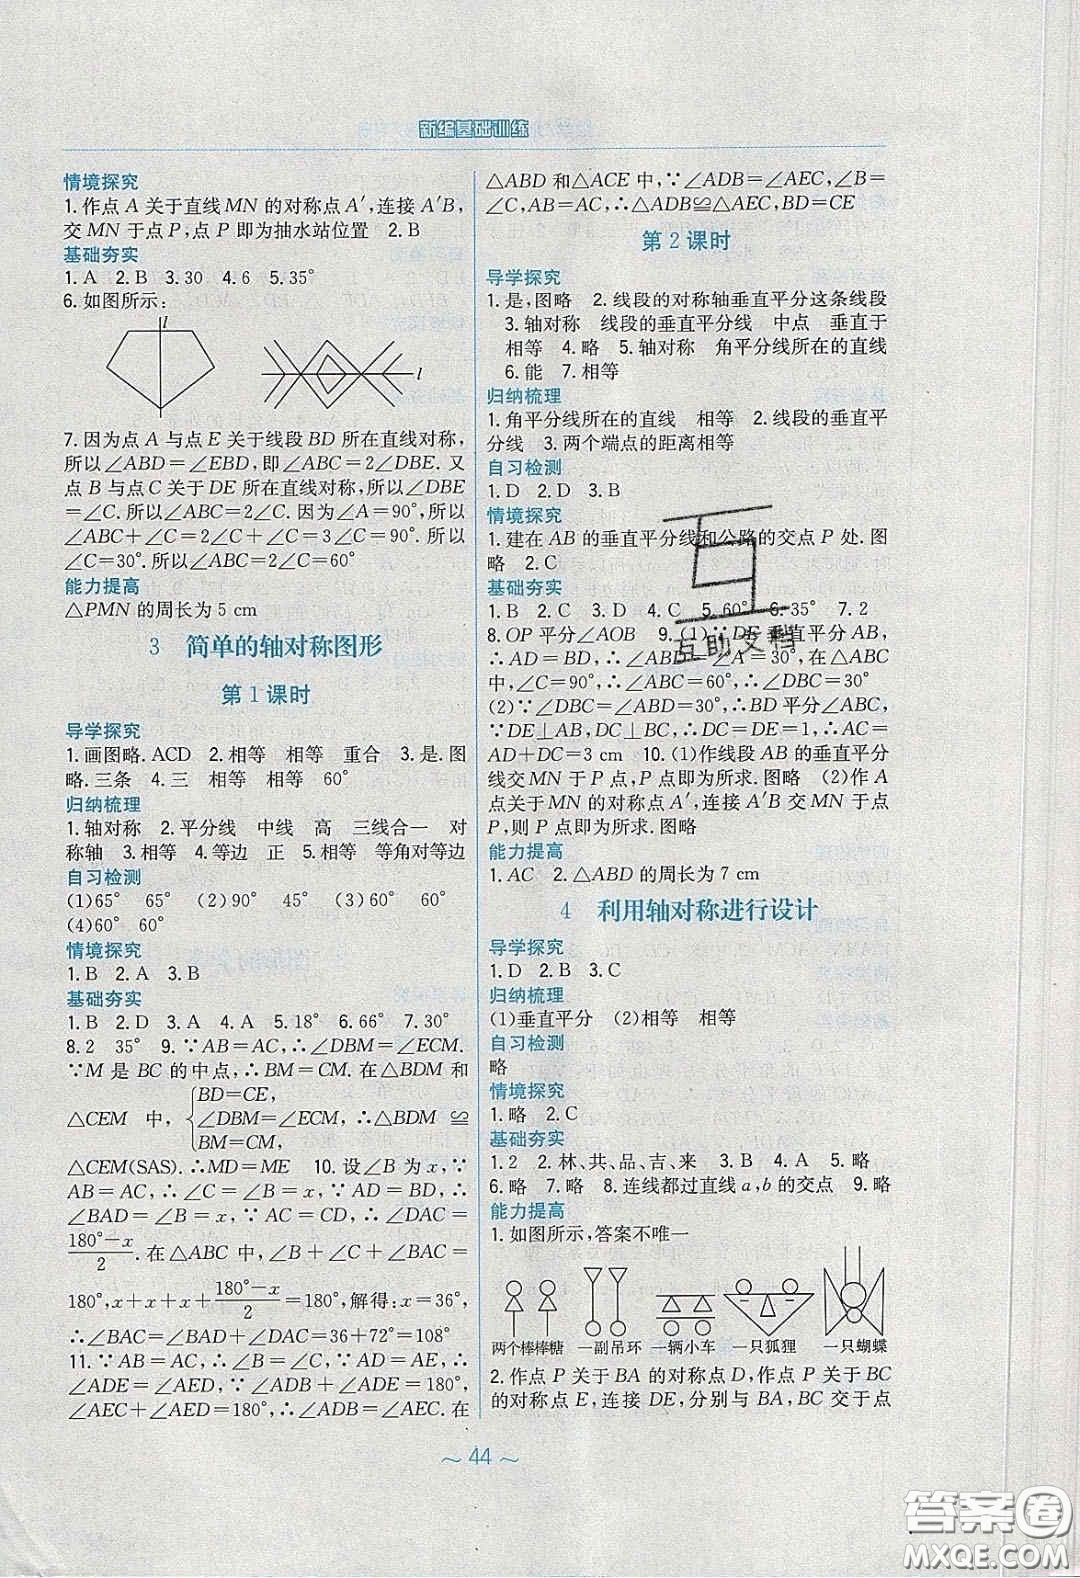 新编基础训练
情境探究
1.作点 A 关于直线 MN 的对称点 A′,连接 A′B,
交 MN 于点 P,点 P 即为抽水站位置　2.B
基础夯实
1.A　2.B　3.30　4.6　5.35°
6.如图所示:
l
l
7.因为点 A 与点 E 关于线段 BD 所在直线对称,
所以∠ABD=∠EBD,即∠ABC=2∠DBE.又
点 B 与点 C 关于 DE 所在直线对称,所以∠DBE
=∠C.所以∠ABC=2∠C.因为∠A=90°,所以
∠ABC+∠C=2∠C+∠C=3∠C=90°.所以
∠C=30°.所以∠ABC=2∠C=60°
能力提高
△PMN 的周长为 5 cm
3　简单的轴对称图形
第 1 课时
导学探究
1.画图略.ACD　2.相等　相等　重合　3.是.图
略.三条　4.三　相等　相等　60°
归纳梳理
1.轴对称　2.平分线　中线　高　三线合一　对
称轴　3.相等　4.等边　正　5.相等　等角对等边
自习检测
(1)65°　65°　(2)90°　45°　(3)50°　80°
(4)60°　60°
情境探究
1.B　2.A　3.B
基础夯实
1.B　2.D　3.A　4.A　5.18°　6.66°　7.30°
8.2　35°　9.∵AB=AC,∴∠DBM=∠ECM.
∵M 是 BC 的中点,∴BM=CM.在△BDM 和
△CEM 中,{BD=CE,
∠DBM=∠ECM,∴△BDM≌
BM=CM,
△CEM(SAS).∴MD=ME　10.设∠B 为 x,∵
AB=AC,∴∠C=∠B=x,∵BD=AD,∴
∠BAD=∠B=x,∵AC=CD,∴∠DAC=
180°−x/2.在△ABC 中,∠B+∠C+∠BAC=
180°,x+x+x+180°−x/2=180°,解得:x=36°,
∴∠BAC=∠BAD+∠DAC=36+72°=108°
11.∵AB=AC,∴∠B=∠C,∵AD=AE,∴
∠ADE=∠AED,∵∠ADE+∠ADB=180°,
∠AEC+∠AED=180°,∴∠ADB=∠AEC.在
△ABD 和△ACE 中,∵∠ADB=∠AEC,∠B=
∠C,AB=AC,∴△ADB≌△AEC,BD=CE
第 2 课时
导学探究
1.是,图略　2.线段的对称轴垂直平分这条线段
3.轴对称　线段的垂直平分线　中点　垂直于
相等　4.略　5.轴对称　角平分线所在的直线
6.能　7.相等
归纳梳理
1.角平分线所在的直线　相等　2.线段的垂直平
分线　3.两个端点的距离相等
自习检测
1.D　2.D　3.B
情境探究
1.建在 AB 的垂直平分线和公路的交点 P 处.图
略　2.C
基础夯实
1.B　2.C　3.D　4.C　5.60°　6.35°　7.2
8.OP 平分∠AOB　9.(1)∵DE 垂直平分 AB,
∴AD=BD,∴∠DBA=∠A=30°,在△ABC
中,∠C=90°,∴∠ABC=60°,∴∠DBC=30°
(2)∵∠DBC=∠ABD=30°,∴BD 平分∠ABC,
∵DE⊥AB,DC⊥BC,∴DC=DE=1,∴AC=
AD+DC=3 cm　10.(1)作线段 AB 的垂直平分
线交 MN 于 P 点,P 点即为所求.图略　(2)作 A
点关于 MN 的对称点 A′,连接 A′B 交 MN 于点
P,则 P 点即为所求.图略
能力提高
1.AC　2.△ABD 的周长为 7 cm
4　利用轴对称进行设计
导学探究
1.D　2.B　3.C
归纳梳理
(1)垂直平分　(2)相等　相等
自习检测
略
情境探究
1.略　2.C
基础夯实
1.2　2.林、共、品、吉、来　3.B　4.A　5.略
6.略　7.略　8.连线都过直线 a,b 的交点　9.略
能力提高
1.如图所示,答案不唯一
两个棒棒糖　一副吊环　一辆小车　一只狐狸　一只蝴蝶
2.作点 P 关于 BA 的对称点 D,作点 P 关于 BC
的对称点 E,连接 DE,分别与 BA,BC 交于点
～44～
互助文档
答案圈
MXQE.COM